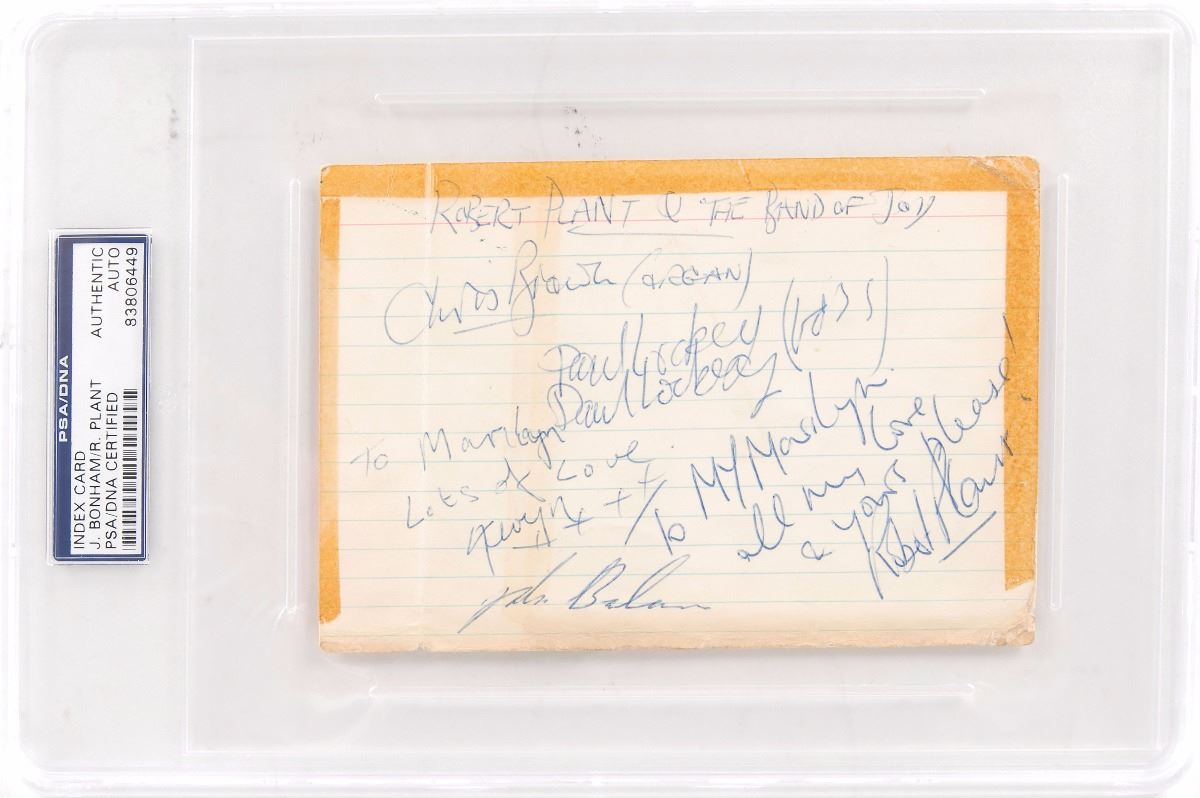 PSA/DNA
INDEX CARD
J. BONHAM/R. PLANT
PSA/DNA CERTIFIED
AUTHENTIC
AUTO
83806449
ROBERT PLANT & THE BAND OF JOY
Chris Brown (ORGAN)
Paul Lockey (bass)
Paul Lockey
To Marilyn
Lots of Love
Kevyn
To MY Marilyn
all my love
& yours please!
Robert Plant
John Bonham